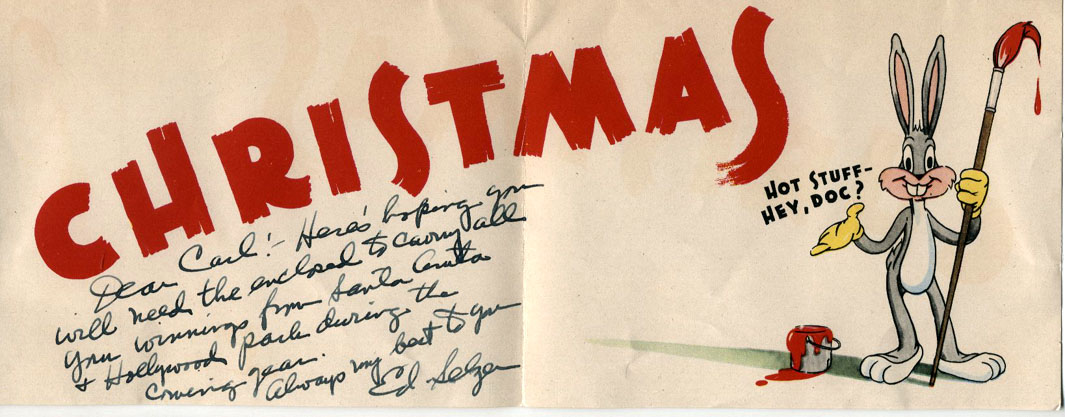 CHRISTMAS
Dear Carl! – Here's hoping you
will need the enclosed to carry all
your winnings from Santa Anita
& Hollywood park during the
coming year.
Always my best to you
Ed Selzer
HOT STUFF-
HEY, DOC?